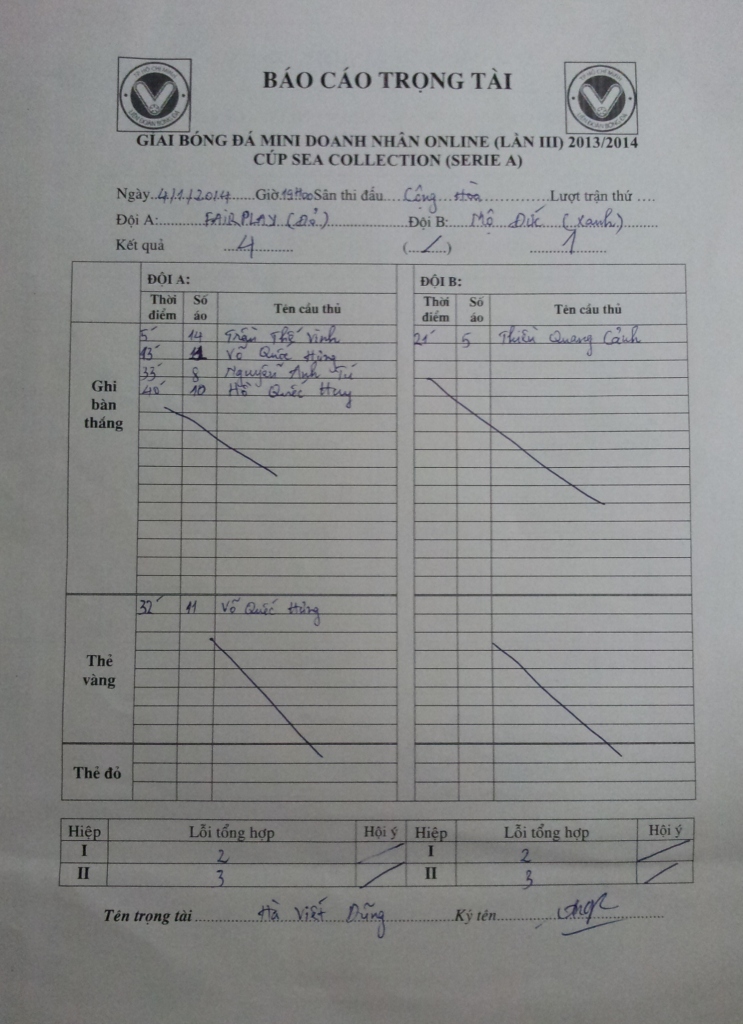 BÁO CÁO TRỌNG TÀI
GIẢI BÓNG ĐÁ MINI DOANH NHÂN ONLINE (LẦN III) 2013/2014
CÚP SEA COLLECTION (SERIE A)
Ngày 4/1/2014 Giờ 19h00 Sân thi đấu Cộng Hòa Lượt trận thứ ....
Đội A: FAIRPLAY (Đỏ) Đội B: Mộ Đức (Xanh)
Kết quả 4 ( / ) 1
ĐỘI A: ĐỘI B:
Thời điểm Số áo Tên cầu thủ Thời điểm Số áo Tên cầu thủ
Ghi bàn thắng
5' 14 Trần Thế Vinh 21' 5 Thiều Quang Cảnh
13' 11 Võ Quốc Hùng
33' 8 Nguyễn Anh Tú
40' 10 Hồ Quốc Huy
Thẻ vàng
32' 11 Võ Quốc Hùng
Thẻ đỏ
Hiệp Lỗi tổng hợp Hội ý Hiệp Lỗi tổng hợp Hội ý
I 2 / I 2 /
II 3 / II 3 /
Tên trọng tài Hà Viết Dũng Ký tên